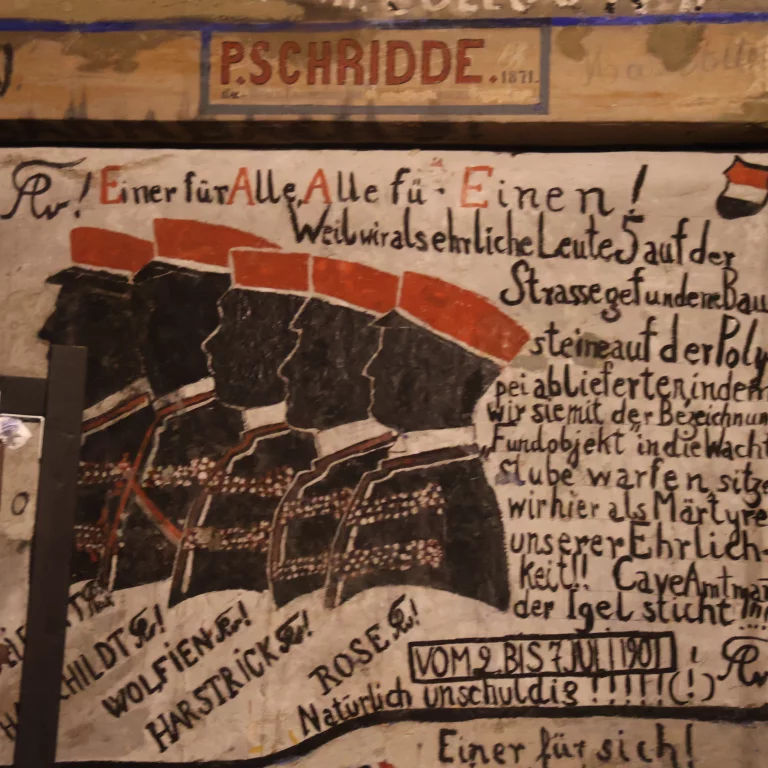 P. SCHRIDDE. 1871.
Einer für Alle, Alle fü Einen!
Weil wir als ehrliche Leute 5 auf der
Strasse gefundene Bau
steine auf der Poly
pei ablieferten, indem
wir sie mit der Bezeichnun
„Fundobjekt" in die Wacht
stube warfen, sitze
wir hier als Märtyre
unserer Ehrlich-
keit!! Cave Amtman
der Igel sticht!!!
CHILDT!
WOLFIEN!
HARSTRICK!
ROSE!
VOM 2. BIS 7. JULI 1901!
Natürlich unschuldig!!!!!(!)
Einer für sich!